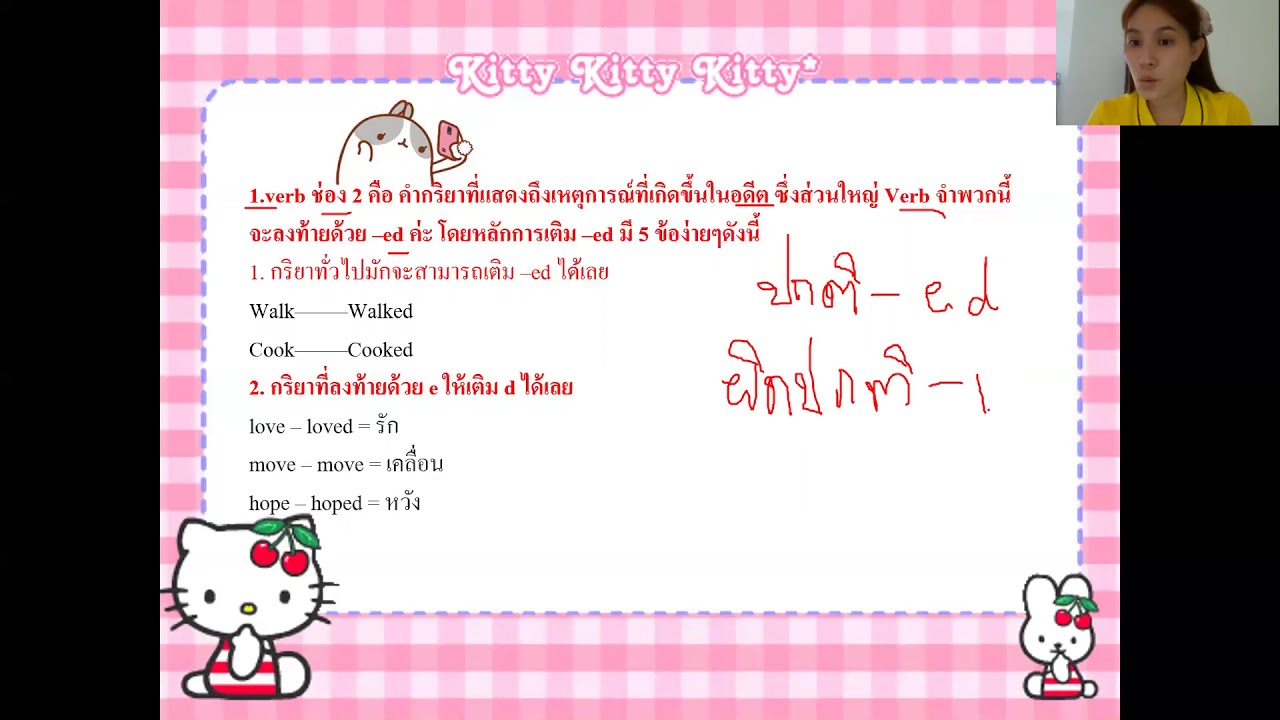 Kitty Kitty Kitty*
1.verb ช่อง 2 คือ คำกริยาที่แสดงถึงเหตุการณ์ที่เกิดขึ้นในอดีต ซึ่งส่วนใหญ่ Verb จำพวกนี้
จะลงท้ายด้วย –ed ค่ะ โดยหลักการเติม –ed มี 5 ข้อง่ายๆดังนี้
1. กริยาทั่วไปมักจะสามารถเติม –ed ได้เลย
Walk———Walked
Cook———Cooked
2. กริยาที่ลงท้ายด้วย e ให้เติม d ได้เลย
love – loved = รัก
move – move = เคลื่อน
hope – hoped = หวัง
ปกติ – ed
ผิดปกติ – 1.